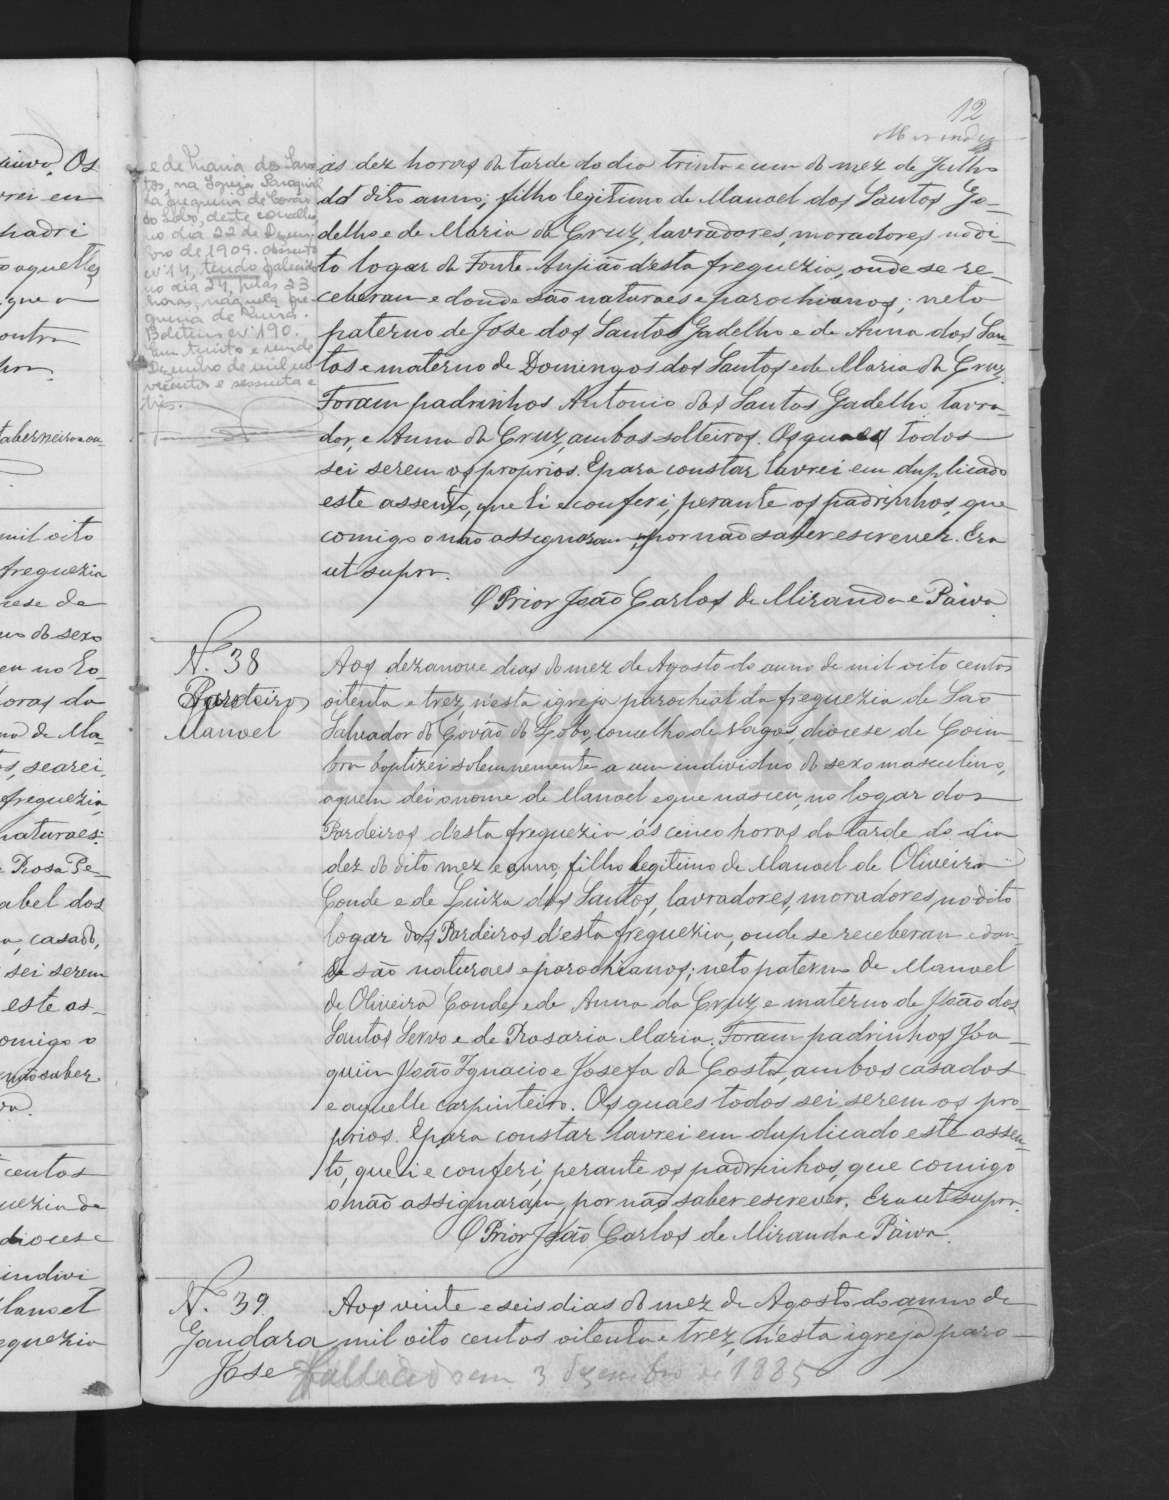 12
Miranda
e de Maria dos San
tos, na Igreja Paroquial
da freguesia de Covão
do Lobo, deste concelho
no dia 22 de Dezem
bro de 1909. Assento
nº 14, tendo falecido
no dia 24, pelas 23
horas, naquela fre
guesia de
Boletim nº 190.
Em trinta e um de
Dezembro de mil no
vecentos e sessenta e
três.
ás dez horas da tarde do dia trinta e um do mez de Julho
do dito anno; filho legitimo de Manoel dos Santos Ga-
delho e de Maria da Cruz, lavradores, moradores no di-
to logar da Fonte Anjião d'esta freguezia, onde se re-
ceberam e donde são naturaes e parochianos; neto
paterno de José dos Santos Gadelho e de Anna dos San
tos e materno de Domingos dos Santos e de Maria da Cruz.
Foram padrinhos Antonio dos Santos Gadelho lavra-
dor, e Anna da Cruz, ambos solteiros. Os quaes todos
sei serem os proprios. E para constar lavrei em duplicado
este assento, que li e conferi, perante os padrinhos, que
comigo o não assignaram, por não saber escrever. Era
ut supra.
O Prior João Carlos de Miranda e Paiva.
N. 38
Pardeiros
Manoel
Aos dezanove dias do mez de Agosto do anno de mil oito centos
oitenta e trez, n'esta igreja parochial da freguezia de São
Salvador do Covão do Lobo, concelho de Vagos, diocese de Coim-
bra baptizei solemnemente a um individuo do sexo masculino,
a quem dei o nome de Manoel e que nasceu, no logar dos
Pardeiros d'esta freguezia ás cinco horas da tarde do dia
dez do dito mez e anno, filho legitimo de Manoel de Oliveira
Conde e de Luiza dos Santos, lavradores, moradores, no dito
logar dos Pardeiros d'esta freguezia, onde se receberam e don-
de são naturaes e parochianos; neto paterno de Manoel
de Oliveira Conde e de Anna da Cruz e materno de João dos
Santos Servo e de Rosaria Maria. Foram padrinhos Joa-
quim João Ignacio e Josefa da Costa, ambos casados
e aquelle carpinteiro. Os quaes todos sei serem os pro-
prios. E para constar lavrei em duplicado este assen-
to, que li e conferi, perante os padrinhos, que comigo
o não assignaram, por não saber escrever. Era ut supra.
O Prior João Carlos de Miranda e Paiva.
N. 39
Gandara
José
Aos vinte e seis dias do mez de Agosto do anno de
mil oito centos oitenta e trez, n'esta igreja paro-
Falleceo em 3 Dezembro de 1885